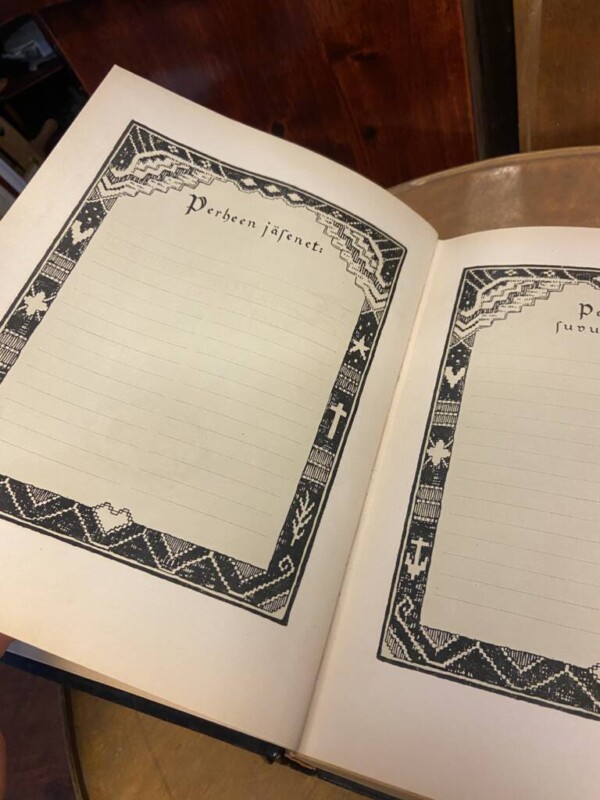 Perheen jäſenet:
Pe
ſuvu